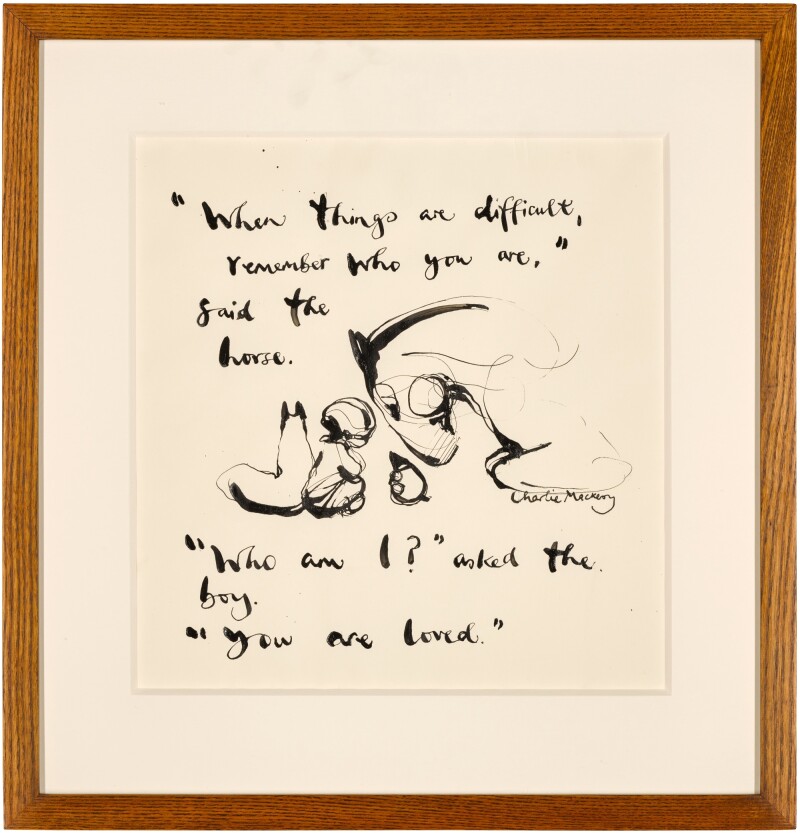 "When things are difficult,
remember who you are,"
said the
horse.
Charlie Mackesy
"Who am I?" asked the.
boy.
"You are loved."